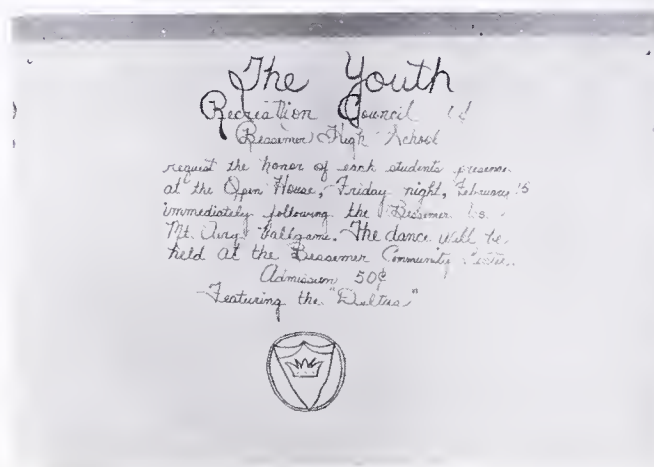 The Youth
Recreation Council of
Bessemer High School
request the honor of each students presence
at the Open House, Friday night, February 15
immediately following the Bessemer vs.
Mt. Airy ballgame. The dance will be
held at the Bessemer Community Center.
Admission 50¢
Featuring the "Deltras"